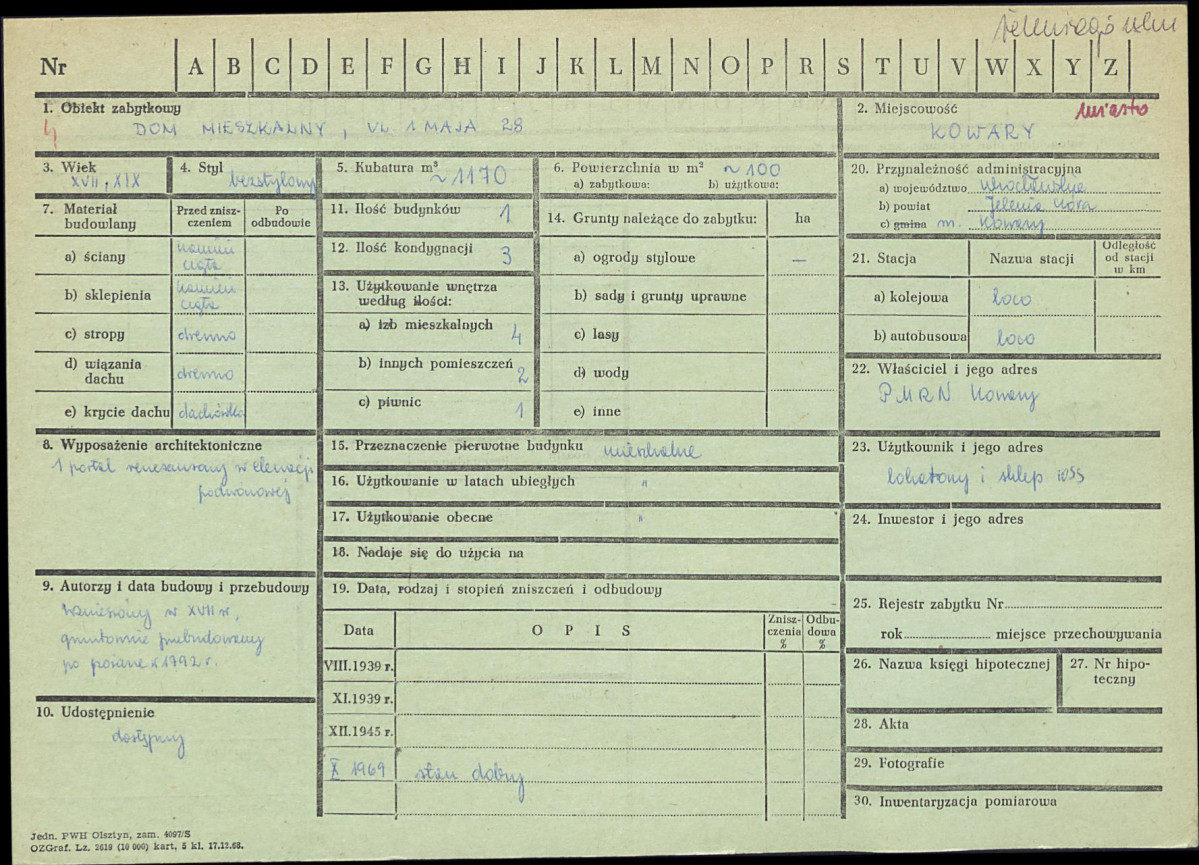 Nr A B C D E F G H I J K L M N O P R S T U V W X Y Z
1. Obiekt zabytkowy
4
DOM MIESZKALNY, UL. 1 MAJA 28
2. Miejscowość
miasto
KOWARY
3. Wiek
XVII, XIX
4. Styl
bezstylowy
5. Kubatura m³
~1170
6. Powierzchnia w m²
~100
a) zabytkowa: b) użytkowa:
7. Materiał budowlany
Przed zniszczeniem
Po odbudowie
a) ściany
kamień
cegła
b) sklepienia
kamień
cegła
c) stropy
drewno
d) wiązania dachu
drewno
e) krycie dachu
dachówka
8. Wyposażenie architektoniczne
1 portal renesansowy w elewacji
podwórzowej
9. Autorzy i data budowy i przebudowy
wzniesiony w XVII w,
gruntownie przebudowany
po pożarze w 1792 r.
10. Udostępnienie
dostępny
11. Ilość budynków
1
12. Ilość kondygnacji
3
13. Użytkowanie wnętrza według ilości:
a) izb mieszkalnych
4
b) innych pomieszczeń
2
c) piwnic
1
14. Grunty należące do zabytku:
ha
a) ogrody stylowe
—
b) sady i grunty uprawne
c) lasy
d) wody
e) inne
15. Przeznaczenie pierwotne budynku
mieszkalne
16. Użytkowanie w latach ubiegłych
"
17. Użytkowanie obecne
"
18. Nadaje się do użycia na
19. Data, rodzaj i stopień zniszczeń i odbudowy
Data
O P I S
Zniszczenia %
Odbudowa %
VIII.1939 r.
XI.1939 r.
XII.1945 r.
X 1969
stan dobry
20. Przynależność administracyjna
a) województwo wrocławskie
b) powiat Jelenia Góra
c) gmina m. Kowary
21. Stacja
Nazwa stacji
Odległość od stacji w km
a) kolejowa
loco
b) autobusowa
loco
22. Właściciel i jego adres
PMRN Kowary
23. Użytkownik i jego adres
lokatorzy i sklep
24. Inwestor i jego adres
25. Rejestr zabytku Nr
rok miejsce przechowywania
26. Nazwa księgi hipotecznej
27. Nr hipoteczny
28. Akta
29. Fotografie
30. Inwentaryzacja pomiarowa
Jedn. PWH Olsztyn, zam. 4097/S
OZGraf. Lz. 2619 (10 000) kart. 5 kl. 17.12.68.